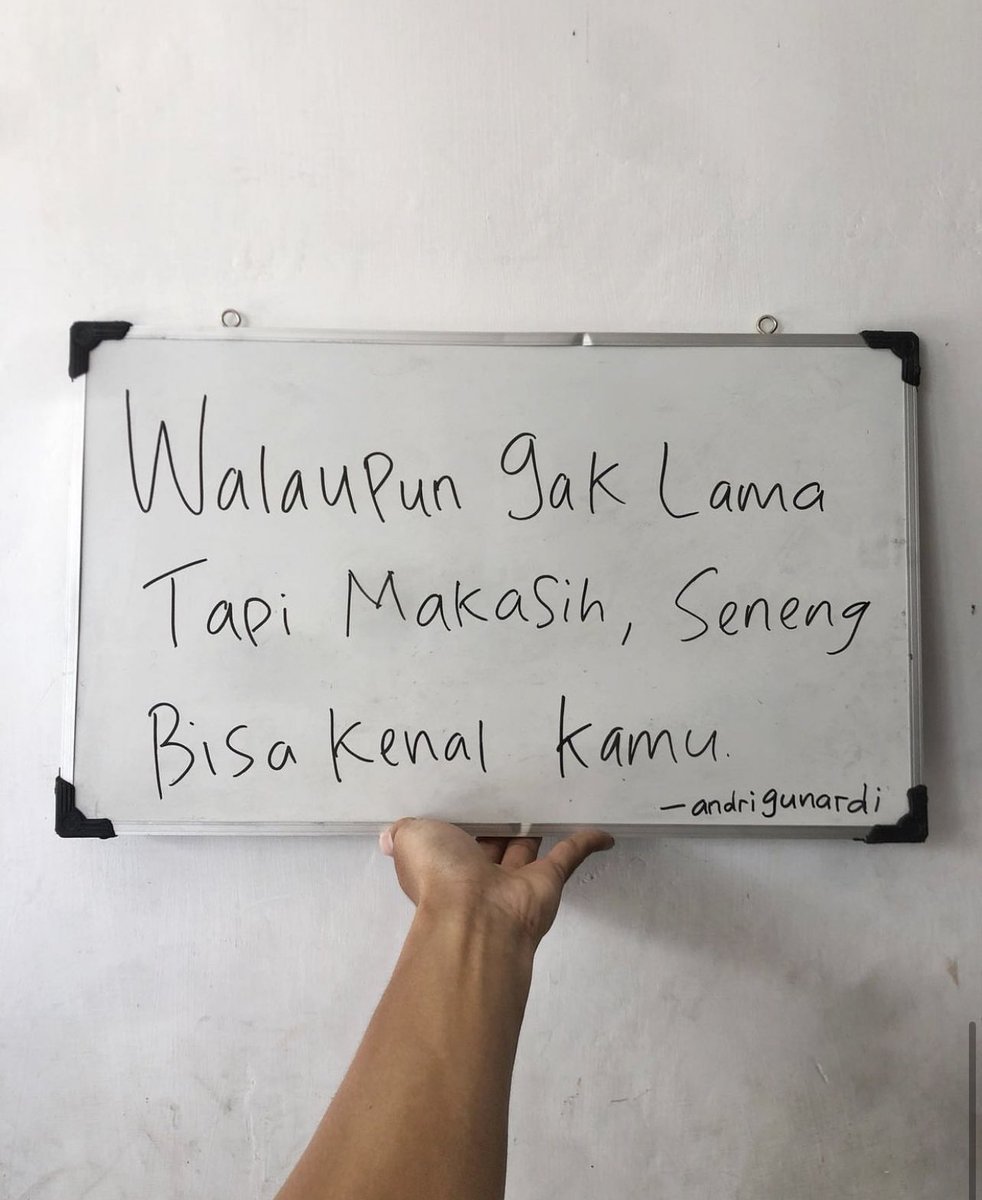 Walaupun gak Lama
Tapi Makasih, Seneng
Bisa kenal kamu.
—andrigunardi